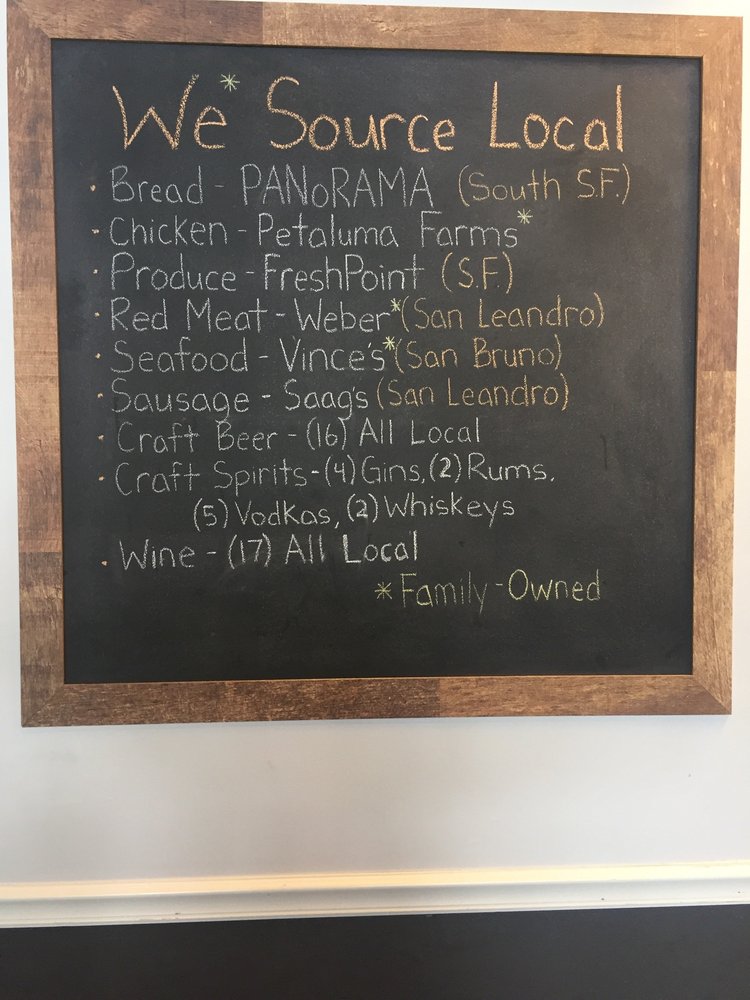 We* Source Local
• Bread - PANoRAMA (South S.F.)
• Chicken - Petaluma Farms*
• Produce - FreshPoint (S.F.)
• Red Meat - Weber* (San Leandro)
• Seafood - Vince's* (San Bruno)
• Sausage - Saag's (San Leandro)
• Craft Beer - (16) All Local
• Craft Spirits - (4) Gins, (2) Rums,
(5) Vodkas, (2) Whiskeys
• Wine - (17) All Local
* Family-Owned